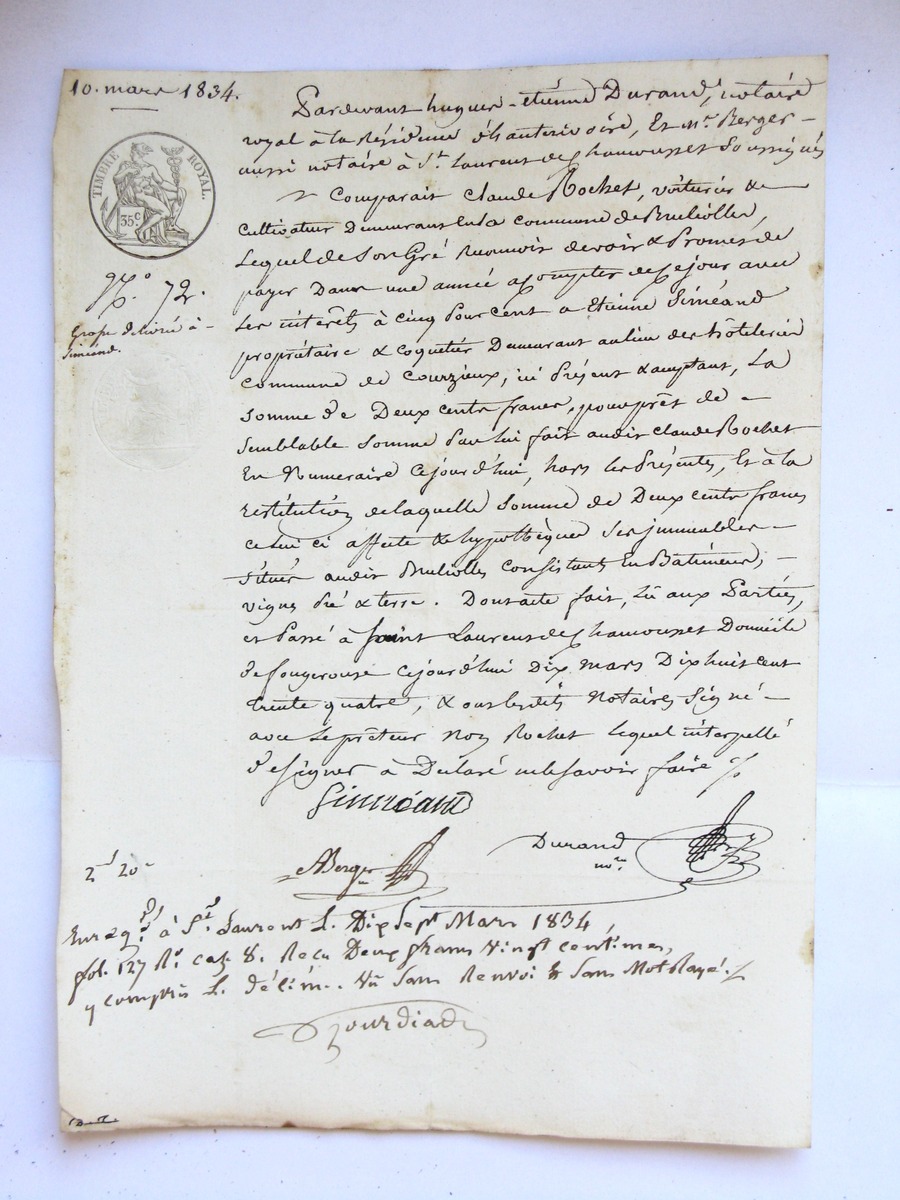 10. mars 1834.
TIMBRE ROYAL.
35c.
N.o 72.
Grosse délivrée à -
Siméand.
Pardevant hugues - étienne Durand, notaire
royal à la Résidence d'hauterivoire, Et Mr. Berger -
aussi notaire à St. Laurent de Chamousset Soussignés
Comparait Claude Rochet, voiturier &
Cultivateur Demeurant En la commune de Brulliolles,
Lequel de Son Gré Reconnoit devoir & Promés de
payer Dans une année a Compter de Cejour avec
Les intérêts à cinq pour cent a Etienne Siméand
propriétaire & coquetier Demeurant au lieu des hôteleries
commune de Courzieux, ici Présent & acceptant, La
Somme de Deux cents francs, pour prêt de -
Semblable Somme Par lui fait audit Claude Rochet
En Numeraire Cejourd'hui, hors les Présentes, Et à la
restitution de laquelle Somme de Deux cents francs
celui ci affecte & hypothèque Ses immeubles -
Situés audit Brulliolles Consistant En Batiments, -
vigne Pré & terre. Dont acte fait, Lû aux Parties,
et Passé à Saint Laurent de Chamousset Domicile
de fougerouse Cejourd'hui Dix mars Dix huit cent
trente quatre, & ont lesdits Notaires Signé -
avec Le prêteur Non Rochet Lequel interpellé
de Signer à Déclaré ne le Savoir faire
Siméand
Durand
nore.
ABerger
2f 20c
Enregd. à St. Laurent L. Dix Sept Mars 1834,
fol. 127 Ro. caz. 8. Recu Deux francs vingt centimes,
y compris L. Décim. Vu Sans Renvoi & Sans Mot Rayé.